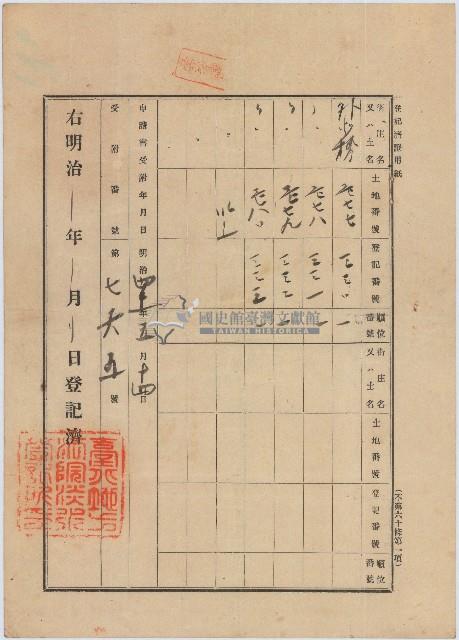 登記濟證用紙
街庄名又ハ土名
土地番號
登記番號
順位番號
街庄名又ハ土名
土地番號
登記番號
順位番號
七七七
三三〇
一
七七八
三三一
一
七七九
三三二
一
七八〇
三三三
以上
申請書受附年月日
明治四三年五月十四日
受附番號
第七六五號
右明治年月日登記濟
(不第六十條第一項)
國史館臺灣文獻館
TAIWAN HISTORICA